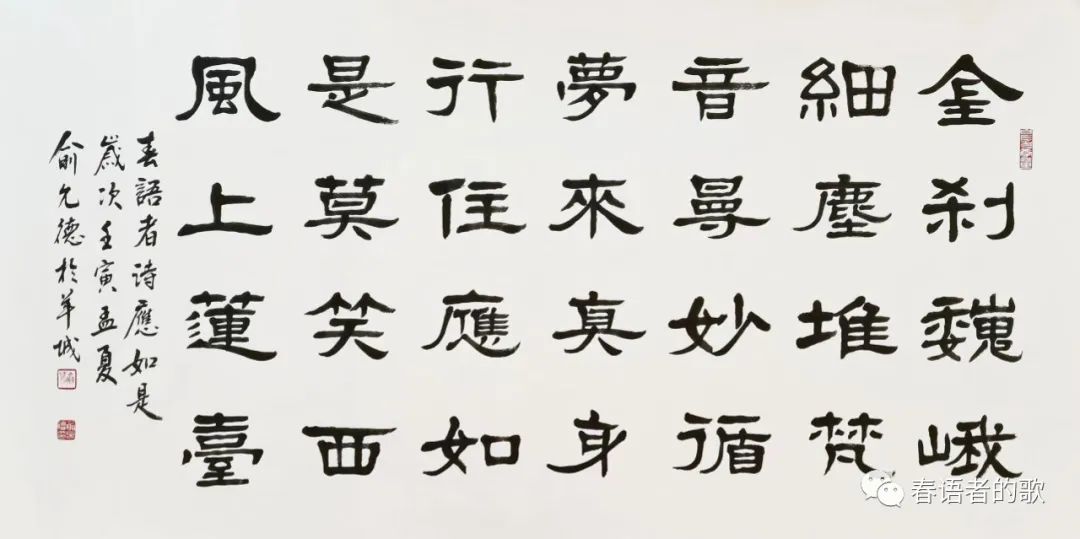 金刹巍峨
細塵堆梵
音曼妙循
夢來真身
行住應如
是莫笑西
風上蓮臺
春語者诗應如是
歲次壬寅孟夏
俞允德於羊城
春语者的歌